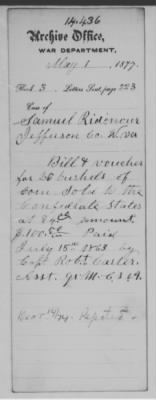 14.436
Archive Office,
WAR DEPARTMENT,
May 1, 1877.
Book 3. Letters Sent, page 223
Case of
Samuel Ridenour
Jefferson Co. W. Va
Bill & voucher
for bushels of
Corn Sold to the
Confederate States
at amount
$100. Paid
July 15th 1863 by
Capt Robt
Asst. Qr. M. C.S.A.